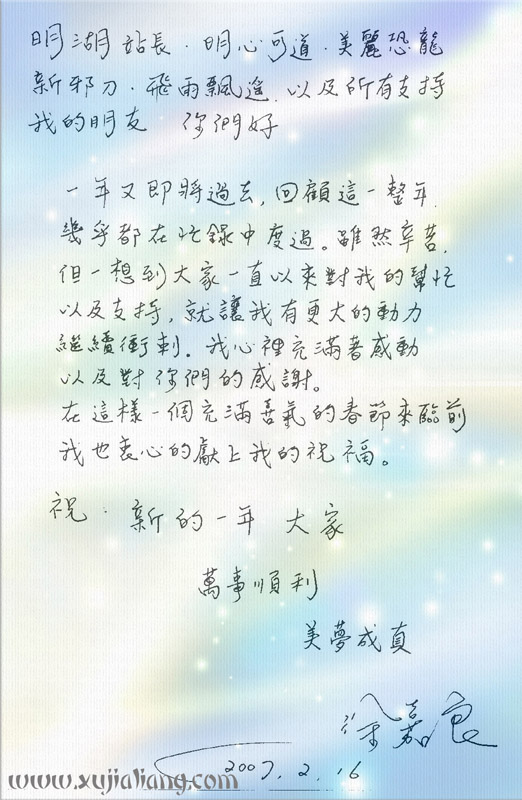 明湖站長．明心可道．美麗恐龍
新邪刀．飛雨飄遙．以及所有支持
我的朋友　你們好
一年又即將過去，回顧這一整年，
幾乎都在忙錄中度過。雖然辛苦，
但一想到大家一直以來對我的幫忙
以及支持，就讓我有更大的動力
繼續衝刺。我心裡充滿著感動
以及對你們的感謝。
在這樣一個充滿喜氣的春節來臨前
我也衷心的獻上我的祝福。
祝．新的一年 大家
萬事順利
美夢成真
徐嘉良
2007. 2. 16
www.xujialiang.com